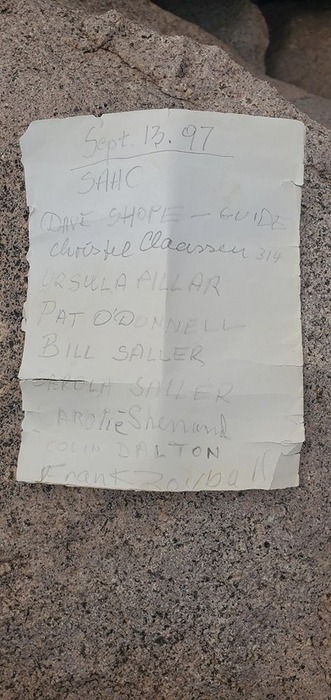 Sept. 13. 97
SAHC
DAVE SHOPE - GUIDE
Christel Claassen 314
URSULA PILLAR
PAT O'DONNELL
BILL SALLER
CAROLA SALLER
Sherrard
COLIN DALTON
Frank